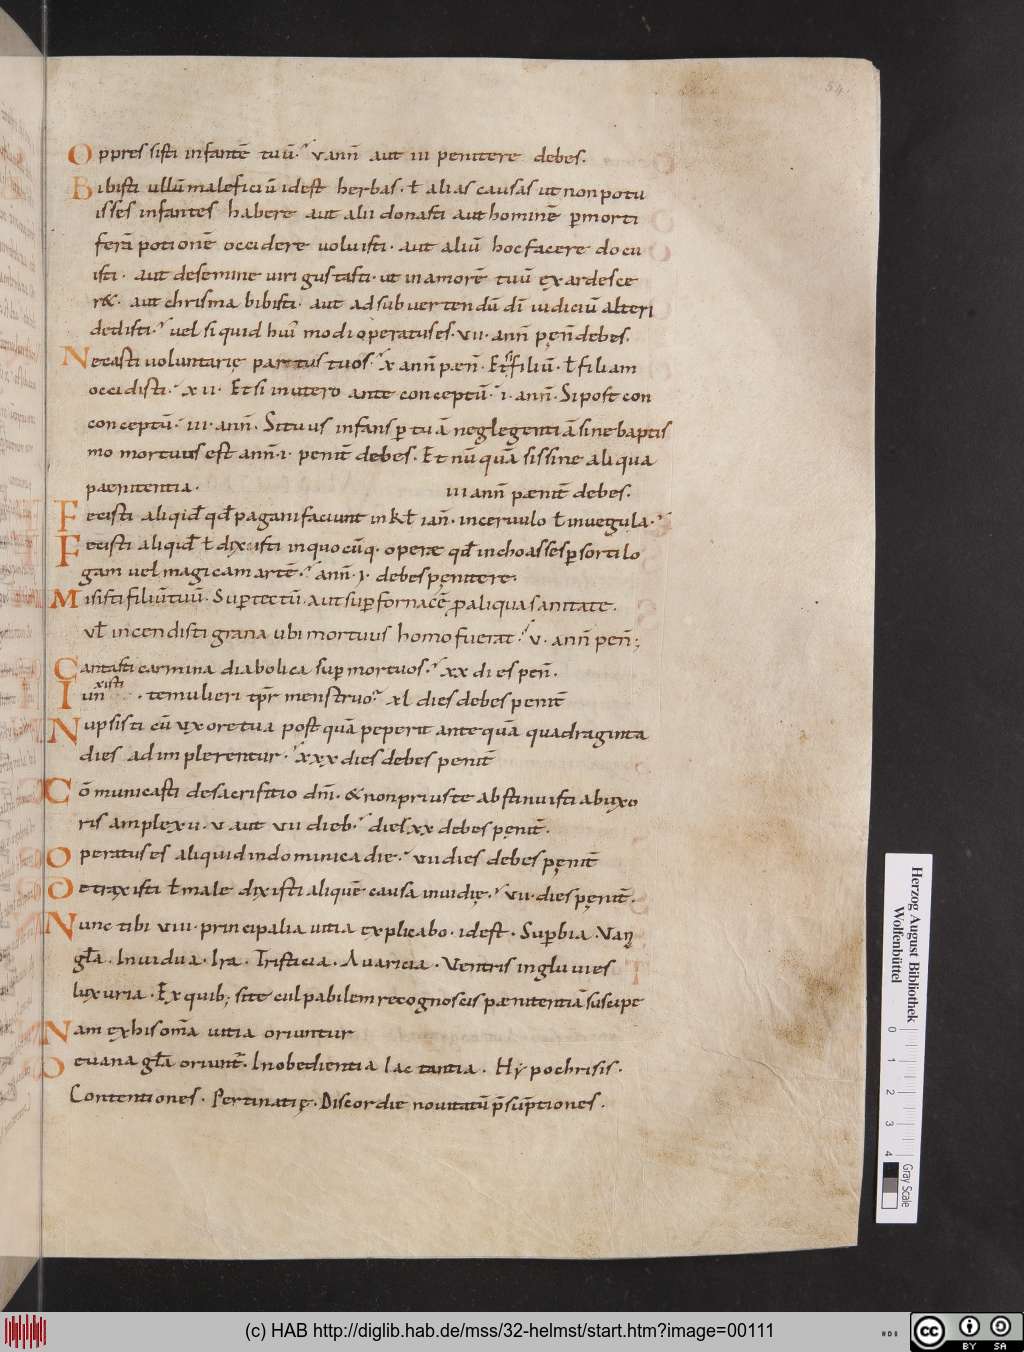 54.
Oppressisti infantē tuū. v ann̄ aut iii penitere debes.
Bibisti ullū maleficiū idest herbas. ł alias causas ut non potu
isses infantes habere aut alii donasti aut hominē p̱morti
ferā potionē occidere uoluisti. aut aliū hoc facere docu
isti. aut desemine uiri gustasti. ut inamorē tuū exardesce
r&. aut chrisma bibisti. aut adsubuertendū dī iudiciū alteri
dedisti. uel siquid modi operatuses. vii. ann̄ pen̄ debes.
Necasti voluntarię partus tuos. x ann̄ pæn̄. Et si filiū. ł filiam
occidisti. xii. Et si inutero ante conceptū. i. ann̄. Si post con
conceptū. iii. ann̄. Situus infans p̱ tuā neglegentiā sine baptis
mo mortuus est ann̄. i. penit̄ debes. Et nūquā sis sine aliqua
paenitentia. iii ann̄ pænit̄ debes.
Fecisti aliqid̄ qd̄ pagani faciunt in kł ian̄. in ceruulo ł in uegula.
Fecisti aliqid̄ ł dixisti inquocūq. operæ qd̄ inchoasses p̱ sortilo
gam uel magicam artē. ann̄. i. debes penitere.
Misisti filiū tuū. Sup̱ tectū. aut sup̱ fornacē, p̱ aliqua sanitate.
Vł incendisti grana ubi mortuus homo fuerat. v. ann̄ pen̄;
Cantasti carmina diabolica sup̱ mortuos. xx dies pen̄.
Iunxisti. te mulieri tp̄r menstruo. xl dies debes penit̄
Nupsisti cū uxore tua post quā peperit antequā quadraginta
dies adimplerentur. xxx dies debes penit̄
Cōmunicasti desacrifitio dn̄i. & non prius te abstinuisti abuxo
ris amplexu. v aut vii dieb. dies xx debes penit̄.
Operatus es aliquid indominica die. vii dies debes penit̄
Detraxisti ł male dixisti aliquē causa inuidię. vii. dies penit̄.
Nunc tibi viii. principalia uitia explicabo. idest. Sup̱bia. Van
gła. Inuidua. Ira. Tristicia. Auaricia. Ventris ingluuies
luxuria. Ex quib; si te culpabilem recognoscis pænitentiā suscipe
Nam ex his om̄a uitia oriuntur
De uana gła oriunt̄. Inobedientia Iactantia. Hypochrisis.
Contentiones. Pertinatię. Discordie nouitatū p̄sūptiones.
Herzog August Bibliothek
Wolfenbüttel
0 1 2 3 4
Gray Scale
(c) HAB http://diglib.hab.de/mss/32-helmst/start.htm?image=00111
cc BY SA